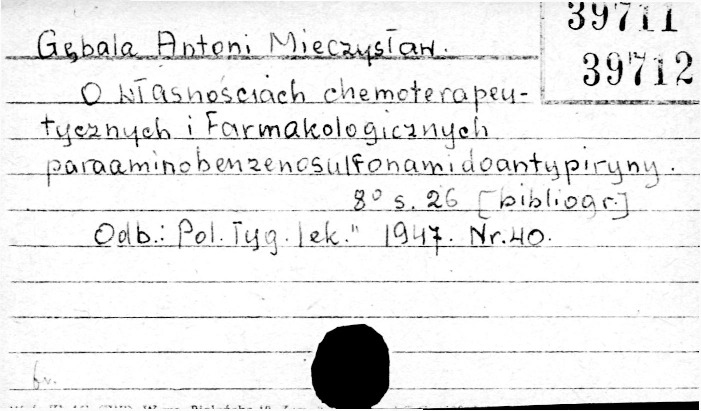 39711
39712
Gębala Antoni Mieczysław.
O własnościach chemoterapeu-
tycznych i farmakologicznych
paraaminobenzenosulfonamidoantypiryny.
8° s. 26 [bibliogr.]
Odb.: Pol. Tyg. lek." 1947. Nr. 40.